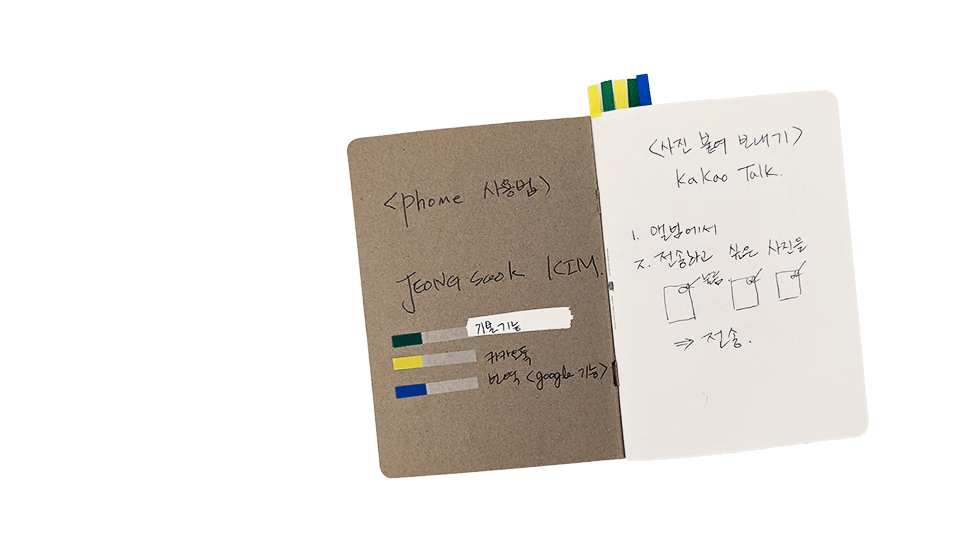 <phone 사용법>
JEONG SOOK KIM.
기본기능
카카오톡
번역 <google 기능>
<사진 붙여 보내기>
kakao Talk.
1. 앨범에서
2. 전송하고 싶은 사진을
누름
⇒ 전송.